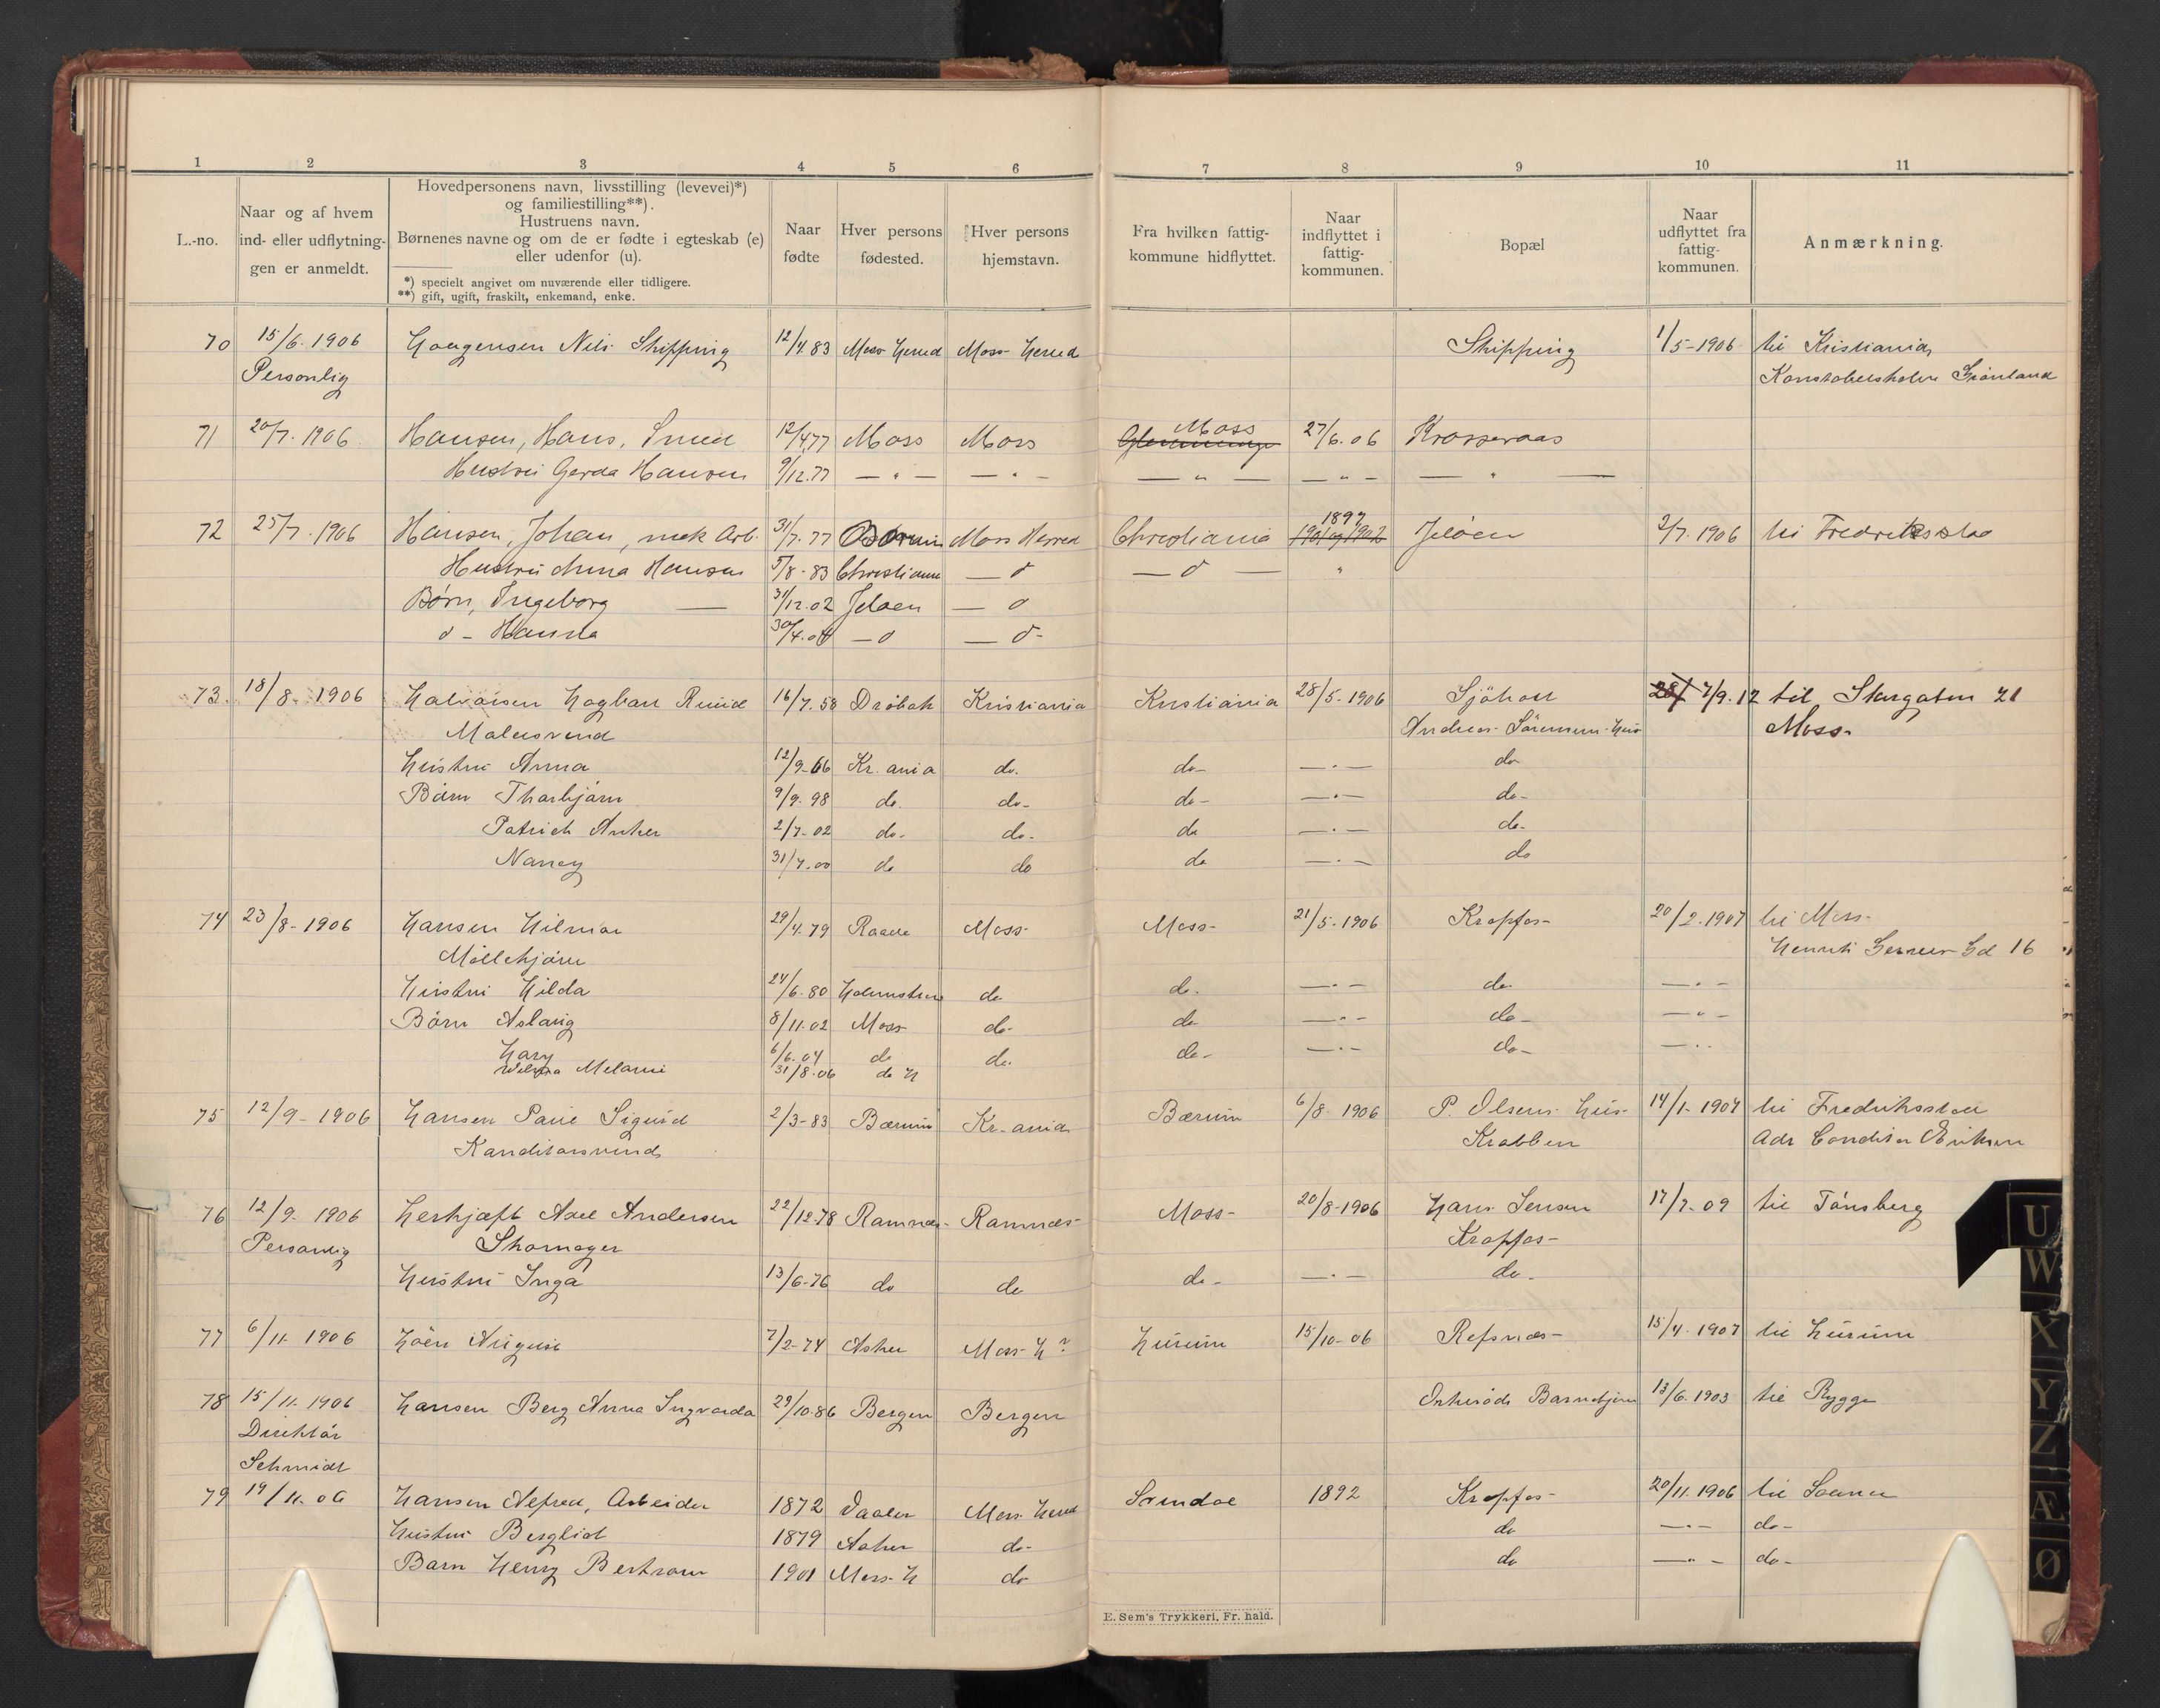 1 2 3 4 5 6 7 8 9 10 11
L.-no.
Naar og af hvem ind- eller udflytningen er anmeldt.
Hovedpersonens navn, livsstilling (levevei)*)
og familiestilling**).
Hustruens navn.
Børnenes navne og om de er fødte i egteskab (e)
eller udenfor (u).
*) specielt angivet om nuværende eller tidligere.
**) gift, ugift, fraskilt, enkemand, enke.
Naar fødte
Hver persons fødested.
Hver persons hjemstavn.
Fra hvilken fattigkommune hidflyttet.
Naar indflyttet i fattigkommunen.
Bopæl
Naar udflyttet fra fattigkommunen.
Anmærkning.
70 15/6. 1906 Haagensen Nils Skipping 12/4 83 Moss Herred Moss Herred Skipping 1/5-1906 til Kristiania
Personlig Grønland
71 20/7. 1906 Hansen, Hans, Smed 12/4.77 Moss Moss Moss 27/6.06 Krosseraas
Hustru Gerda Hansen 9/12.77 — " — — " — — " — — " — — " —
72 25/7. 1906 Hansen, Johan, mek Arb. 31/7.77 Moss Herred Christiania 1897 1901 og 1902 Jeløen 2/7. 1906 til Fredriksstad
Hustru Anna Hansen 5/8-83 Christiania — d — d — "
Børn, Ingeborg — 31/12.02 Jeløen — d
d - Hansla 30/4.04 — d — d -
73. 18/8-1906 Halvorsen Hagbart Ruud 16/7.58 Drøbak Kristiania Kristiania 28/5-1906 Sjøhall 28/ 7/9.12 til Storgaten 21
Malersvend Andreas Sørensen Hus Moss-
Hustru Anna 12/9-66 Kr.ania do. do- — . — do
Børn Thorbjørn 9/9.98 do. do- do- — . — do-
Patrick Anker 2/7-02 do- do- do — . — do-
Nancy 31/7.00 do do do — . — do
74 23/8-1906 Hansen Hilmar 29/4.79 Raade Moss- Moss- 21/5-1906 Kropfos- 20/2.1907 til Moss-
Møllebjørn Henrik Gd 16
Hustru Hilda 24/6.80 Holmstrand do do- — . — do — . —
Børn Aslaug 8/11.02 Moss do- do — " — do- — " —
Hary 6/6.04 do do- do- — . — do- — . .
Melanie 31/8.06 do H
75 12/9-1906 Hansen Paul Sigurd 2/3-83 Bærum Kr.ania Bærum 6/8 1906 P. Olsens Hus- 14/1-1907 til Fredriksstad
Kanditorsvend Krabben Adr Conditor Eriksen
76 12/9- 1906 Herkjøft Axel Andersen 22/12-78 Ramnæs- Ramnæs- Moss- 20/8-1906 Hans Jensen 17/7-09 til Tønsberg
Personlig Skomager Kropfos-
Hustru Inga 13/6-76 do do do- — . — do-
77 6/11 1906 Høen August 7/2-74 Asker Moss H? Hurum 15/10-06 Refsnæs- 15/4.1907 til Hurum
78 15/11. 1906 Hansen Berg Anna Ingvarda 29/10.86 Bergen Bergen Orkerød Barnehjem 13/6.1903 til Rygge
Direktør
Schmidt
79 19/11.06 Hansen Alfred, Arbeider 1872 Vaaler Moss Herred 1892 Kropfos- 20/11.1906 til Sooner
Hustru Bergliot 1879 Asker do- do — . — do-
Barn Henry Bertram 1901 Moss H do do — " — do-
E. Sem's Trykkeri, Fr. hald.
U
W
X
Y
Z
Æ
Ø